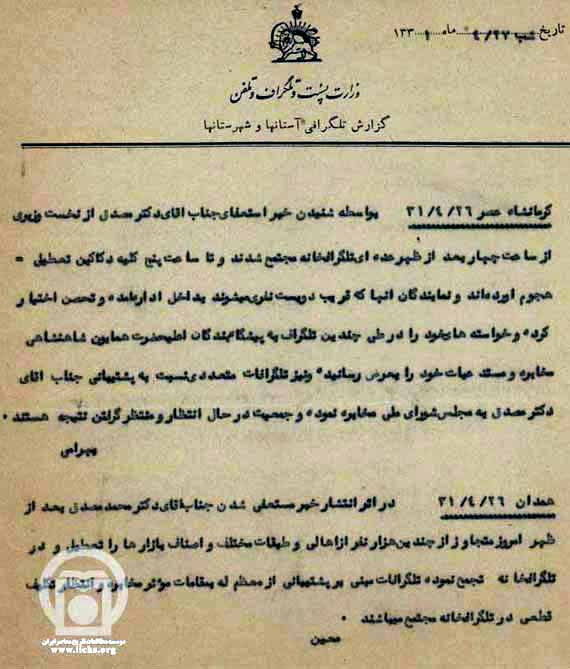 تاریخ شب ۴/۲۷ ماه ۱۳۳۱
وزارت پست و تلگراف و تلفن
گزارش تلگرافی آستانها و شهرستانها
کرمانشاه عصر ۳۱/۴/۲۶ بواسطه شنیدن خبر استعفای جناب اقای دکتر مصدق از نخست وزیری
از ساعت چهار بعد از ظهر عده ای تلگرافخانه مجتمع شدند و تا ساعت پنج کلیه دکاکین تعطیل =
هجوم اورده‌اند و نمایندگان انها که قریب دویست نفری میشوند بداخل اداره امده و تحصن اختیار
کرده و خواسته های خود را در طی چندین تلگراف به پیشگاه بندگان اعلیحضرت همایون شاهنشاهی
مخابره و خود را بعرض رسانیده ونیز تلگرافات متعددی نسبت به پشتیبانی جناب اقای
دکتر مصدق به مجلس شورای ملی مخابره نموده و جمعیت در حال انتظار و منتظر گرفتن نتیجه هستند ۰
بهرامی
همدان ۳۱/۴/۲۶ در اثر انتشار خبر مستعفی شدن جناب اقای دکتر محمد مصدق بعد از
ظهر امروز متجاوز از چندین هزار نفر از اهالی و طبقات مختلف و اصناف بازار ها را تعطیل و در
تلگرافخانه تجمع نموده تلگرافات مبنی بر پشتیبانی از معظم له بمقامات مؤثر مخابره و انتظار تکلیف
قطعی در تلگرافخانه مجتمع میباشند ۰
معین
موسسه مطالعات تاریخ معاصر ایران
www.iichs.org